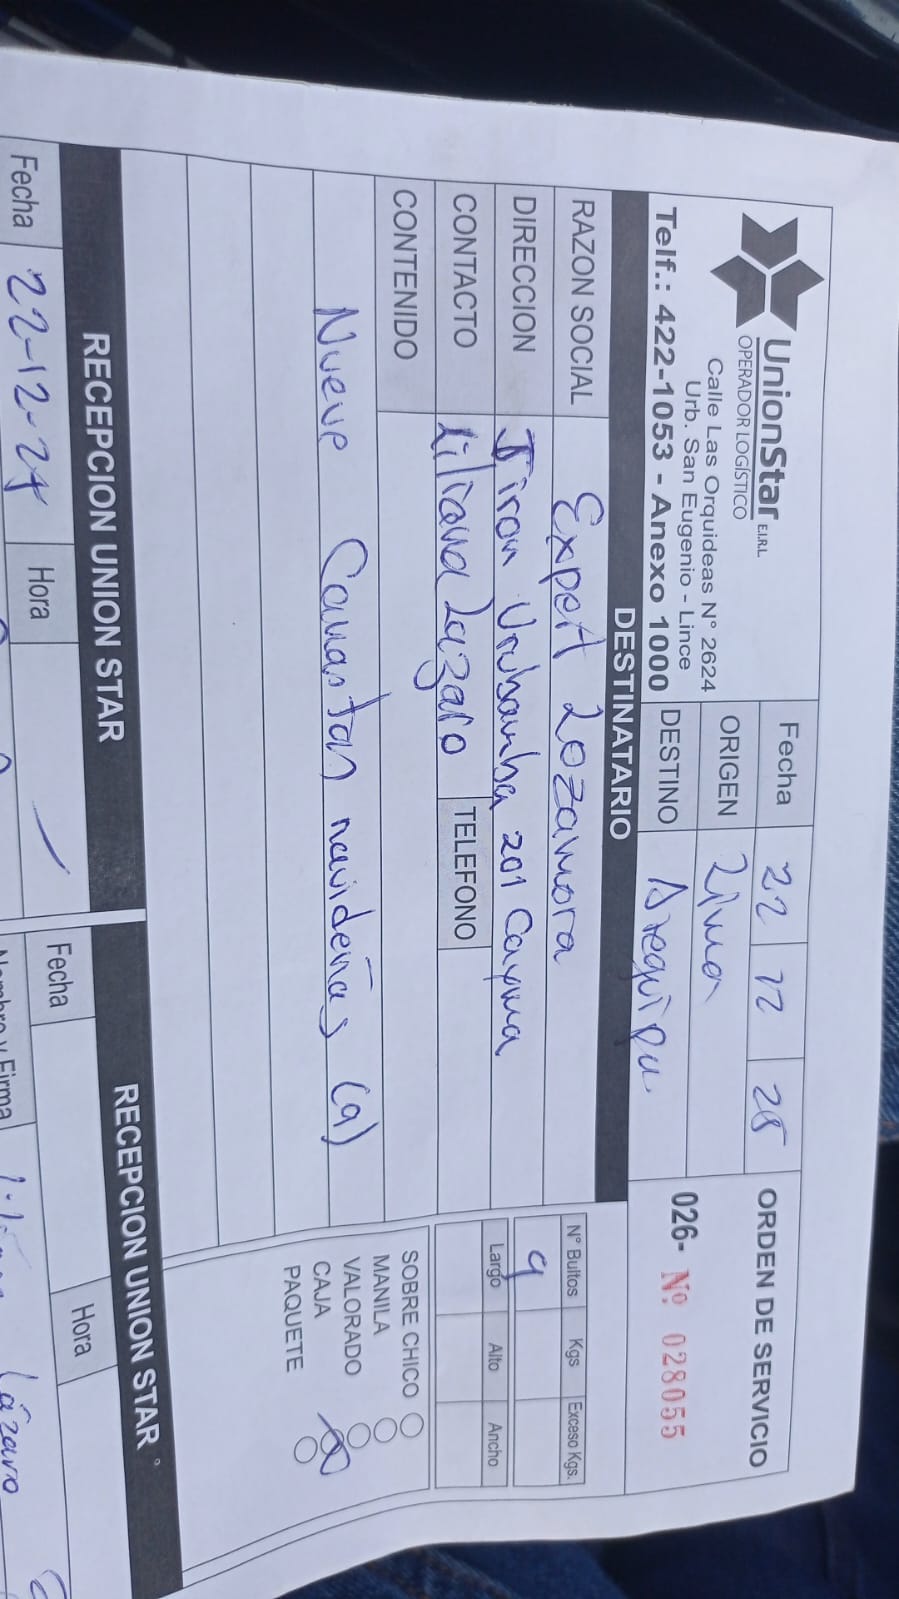 UnionStar E.I.R.L.
OPERADOR LOGÍSTICO
Calle Las Orquideas N° 2624
Urb. San Eugenio - Lince
Telf.: 422-1053 - Anexo 1000
Fecha 22 12 25
ORIGEN Lima
DESTINO Arequipa
ORDEN DE SERVICIO
026- Nº 028055
DESTINATARIO
RAZON SOCIAL Expert Lozamora
DIRECCION Jiron Urubamba 201 Cayma
CONTACTO Liliana Lazaro TELEFONO
CONTENIDO
Nueve Canastas navideñas (9)
N° Bultos Kgs Exceso Kgs.
9
Largo Alto Ancho
SOBRE CHICO
MANILA
VALORADO
CAJA
PAQUETE
RECEPCION UNION STAR
Fecha 22-12-24 Hora
RECEPCION UNION STAR
Fecha Hora
Nombre y Firma Lázaro